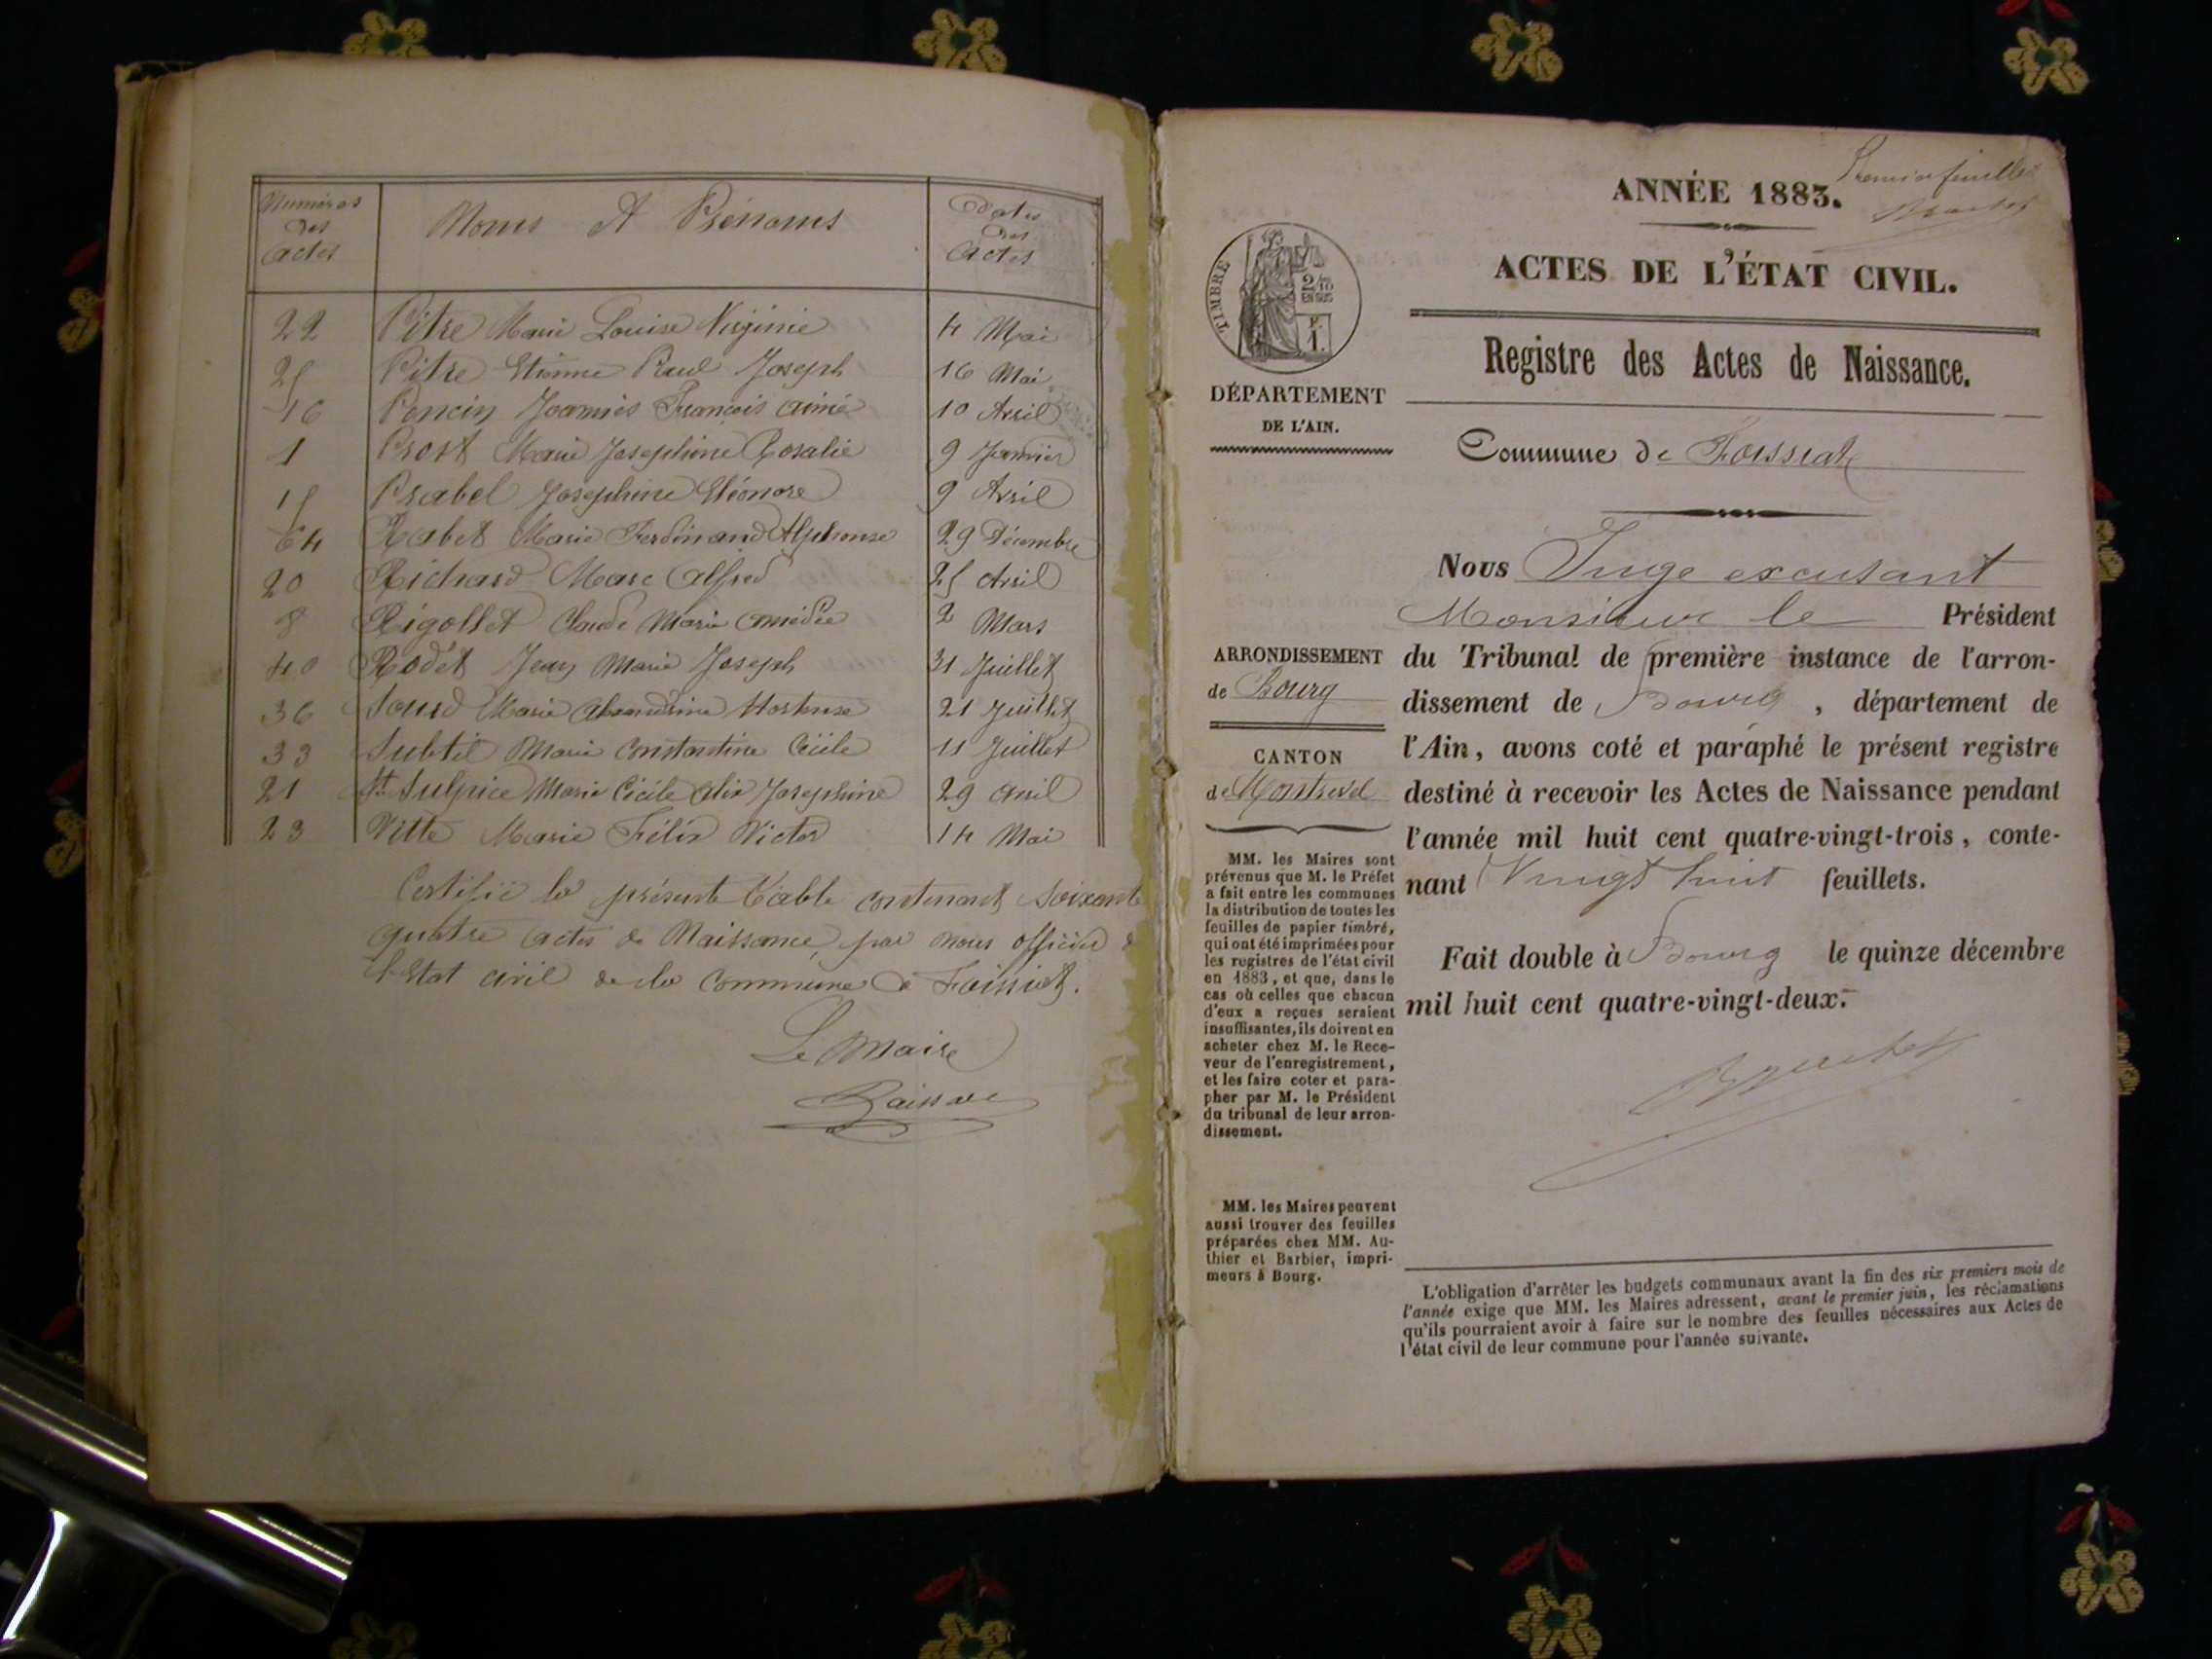 Numéros des actes
Noms et Prénoms
Dates des Actes
22 Pitre Marie Louise Virginie 4 Mai
25 Pitre Etienne Paul Joseph 16 Mai
16 Poncin Joannès François aimé 10 Avril
1 Prost Marie Josephine Rosalie 9 Janvier
15 Prabel Josephine Eléonore 9 Avril
64 Rabet Marie Ferdinand Alphonse 29 Décembre
20 Richard Marc Alfred 25 Avril
8 Rigollet Claude Marie amédée 2 Mars
40 Rodet Jean Marie Joseph 31 Juillet
36 Sourd Marie Alexandrine Hortense 21 Juillet
33 Subtil Marie Constantine Cécile 11 Juillet
21 St Sulpice Marie Cécile Alix Josephine 29 avril
23 Vitte Marie Félix Victor 14 Mai
Certifié la présente Table contenant soixante
quatre actes de Naissance, par nous officier de
l'Etat civil de la commune de Foissiat.
Le Maire
Premier feuillet
ANNÉE 1883.
ACTES DE L'ÉTAT CIVIL.
Registre des Actes de Naissance.
Commune de Foissiat
TIMBRE
2/10
EN SUS
F.
1.
DÉPARTEMENT
DE L'AIN.
ARRONDISSEMENT
de Bourg
CANTON
de Montrevel
MM. les Maires sont
prévenus que M. le Préfet
a fait entre les communes
la distribution de toutes les
feuilles de papier timbré,
qui ont été imprimées pour
les registres de l'état civil
en 1883, et que, dans le
cas où celles que chacun
d'eux a reçues seraient
insuffisantes, ils doivent en
acheter chez M. le Rece-
veur de l'enregistrement,
et les faire coter et para-
pher par M. le Président
du tribunal de leur arron-
dissement.
MM. les Maires peuvent
aussi trouver des feuilles
préparées chez MM. Au-
thier et Barbier, impri-
meurs à Bourg.
Nous Juge excusant
Monsieur le Président
du Tribunal de première instance de l'arron-
dissement de Bourg, département de
l'Ain, avons coté et paraphé le présent registre
destiné à recevoir les Actes de Naissance pendant
l'année mil huit cent quatre-vingt-trois, conte-
nant Vingt huit feuillets.
Fait double à Bourg le quinze décembre
mil huit cent quatre-vingt-deux.
L'obligation d'arrêter les budgets communaux avant la fin des six premiers mois de
l'année exige que MM. les Maires adressent, avant le premier juin, les réclamations
qu'ils pourraient avoir à faire sur le nombre des feuilles nécessaires aux Actes de
l'état civil de leur commune pour l'année suivante.